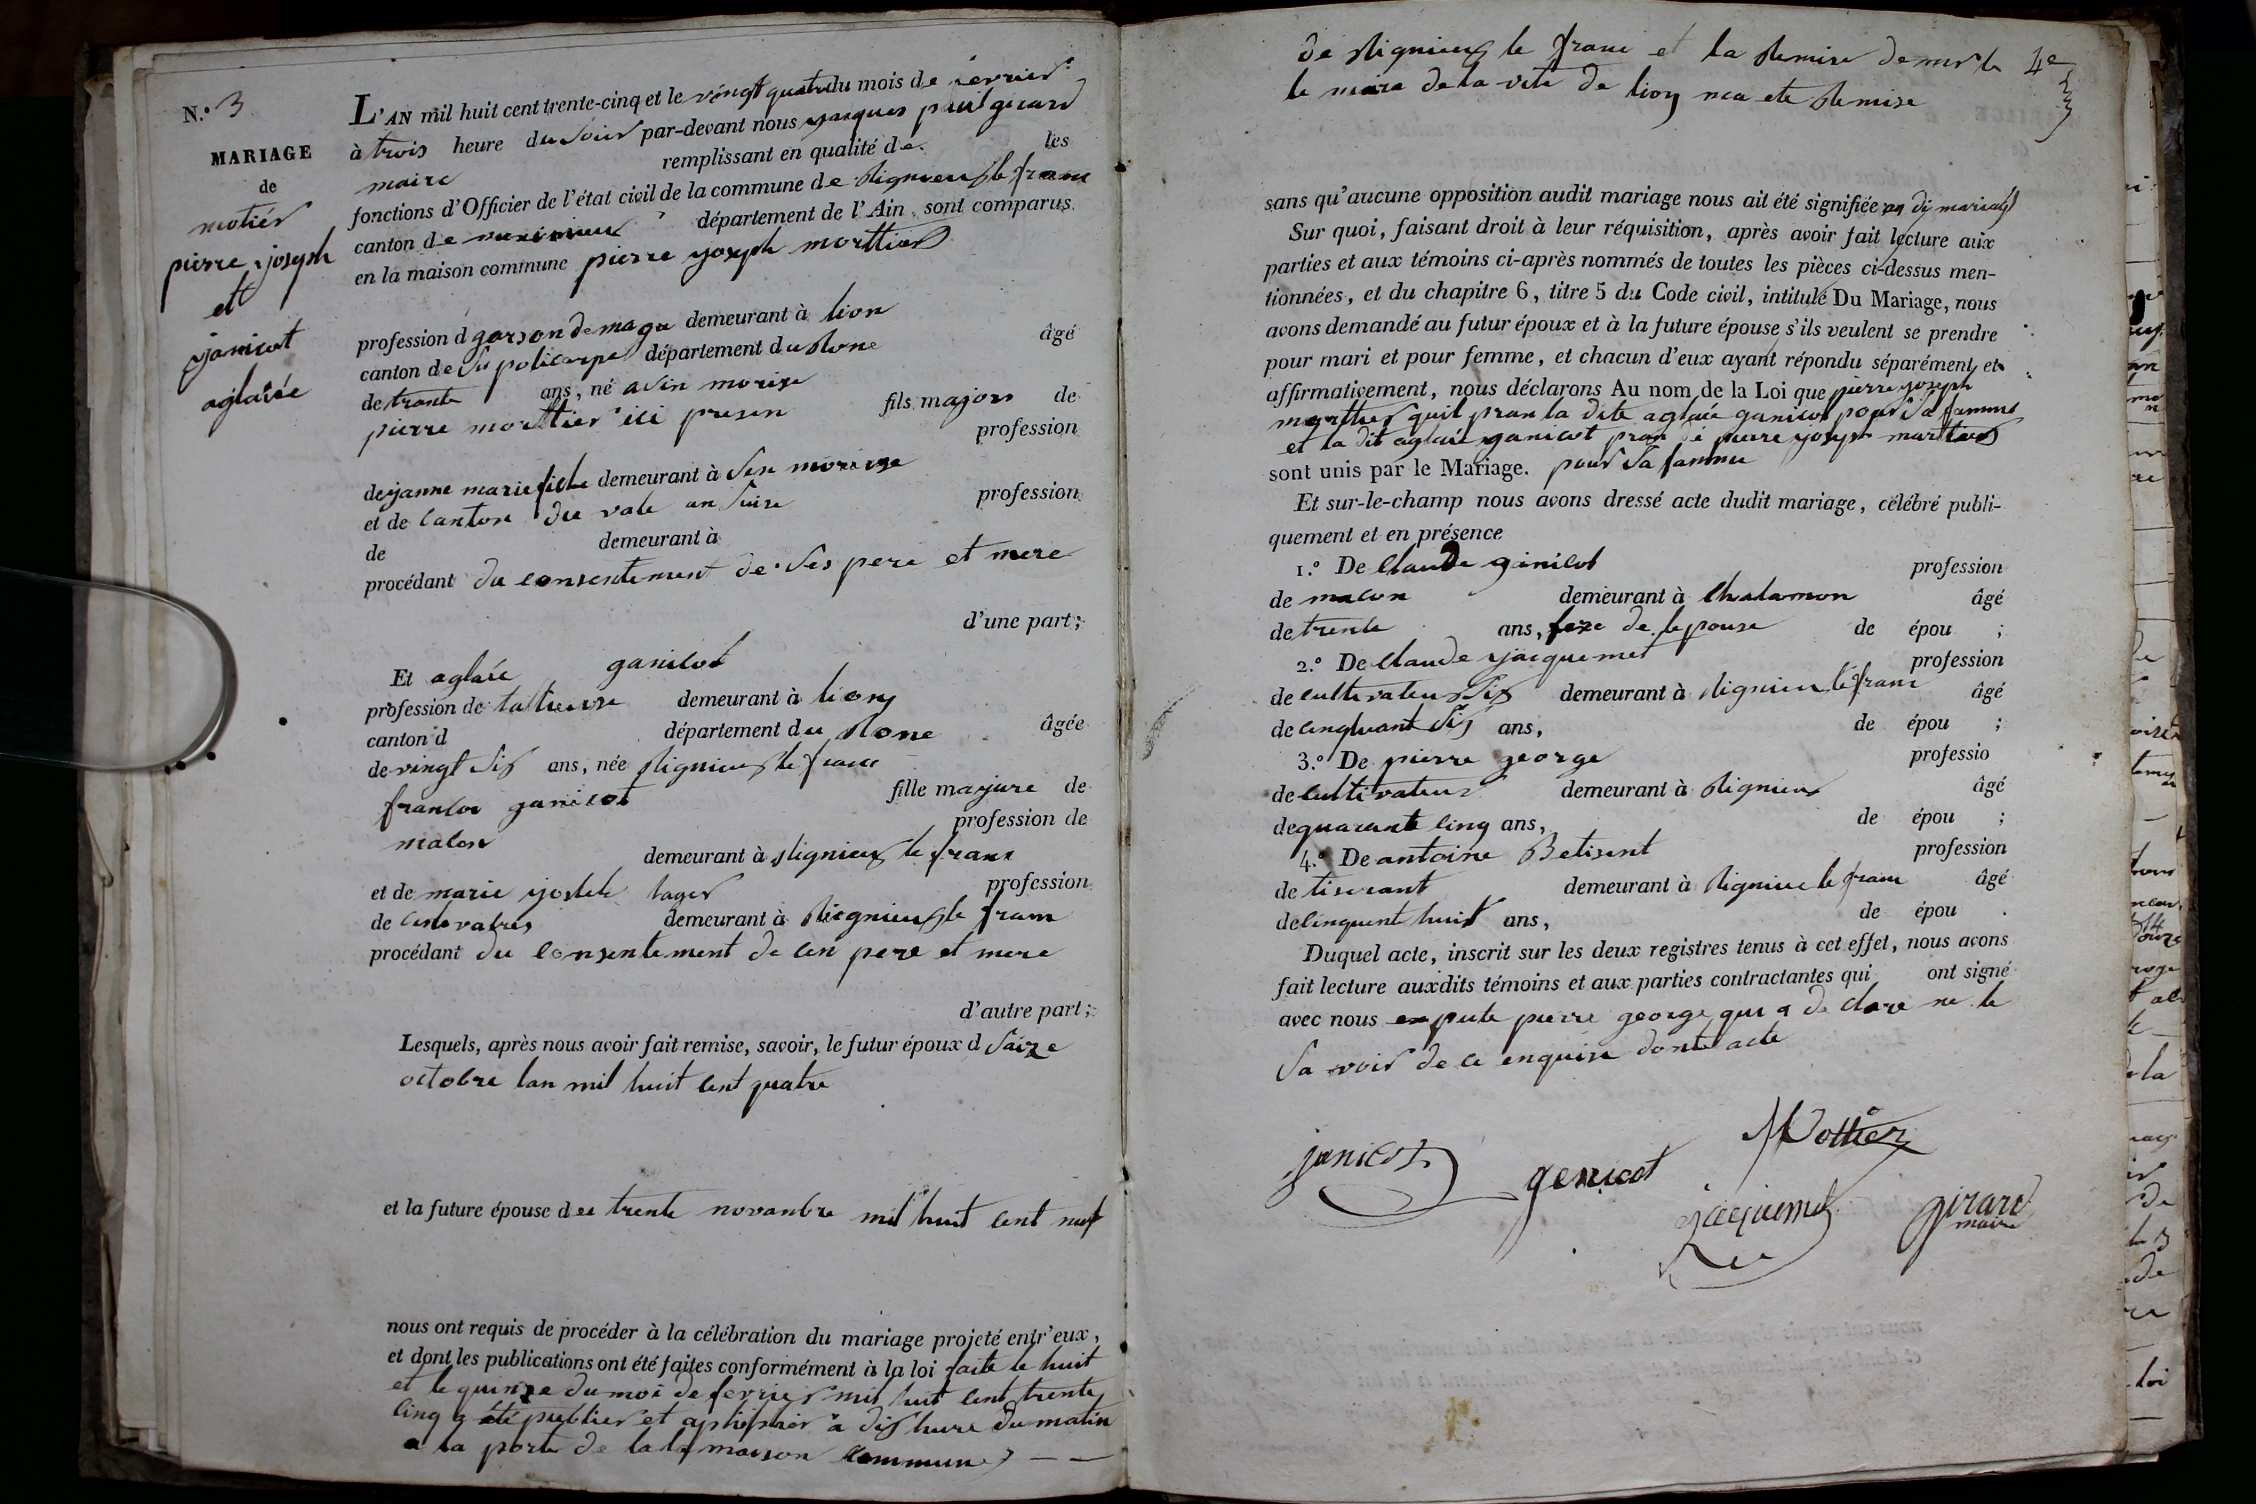 N.º 3
MARIAGE
de
motiér
pierre joseph
et
janicot
aglaiée
L'AN mil huit cent trente-cinq et le vingt quatre du mois de fevrier
à trois heure du soir par-devant nous jacques paul girard
maire remplissant en qualité de les
fonctions d'Officier de l'état civil de la commune de Rignieux le franc
canton de meximieux département de l'Ain, sont comparus
en la maison commune pierre joseph morttier
profession d garson de maga demeurant à lion
canton de st policarpe département du Rone âgé
de trante ans, né a sin morixe
pierre morttier ici presen fils major de
profession
de janne marie demeurant à sin morixe
et de canton du vale an suise profession
de demeurant à
procédant du consentement de ses pere et mere
d'une part;
Et aglaée ganicot
profession de talieuse demeurant à lion
canton d département du Rone âgée
de vingt six ans, née Rignieux le franc
francoi ganicot fille majure de
macon profession de
demeurant à Rignieux le franc
et de marie profession
de cultivatrise demeurant à Riegnieux le franc
procédant du consentement de cen pere et mere
d'autre part;
Lesquels, après nous avoir fait remise, savoir, le futur époux d saize
octobre lan mil huit cent quatre
et la future épouse du trente novanbre mil huit cent neuf
nous ont requis de procéder à la célébration du mariage projeté entr'eux,
et dont les publications ont été faites conformément à la loi faite le huit
et le quinze du moi de fevrier mil huit cent trente
cinq a été publier et à dix heure du matin
a la porte de la maison commune
de Rignieux le franc et la Remise de
le maire de la vile de lion ete Remise
sans qu'aucune opposition audit mariage nous ait été signifiée au dij mariage
Sur quoi, faisant droit à leur réquisition, après avoir fait lecture aux
parties et aux témoins ci-après nommés de toutes les pièces ci-dessus men-
tionnées, et du chapitre 6, titre 5 du Code civil, intitulé Du Mariage, nous
avons demandé au futur époux et à la future épouse s'ils veulent se prendre
pour mari et pour femme, et chacun d'eux ayant répondu séparément et
affirmativement, nous déclarons Au nom de la Loi que pierre joseph
morttier quil pran la dite aglaié ganicot pour sa famme
et la dit aglaié ganicot pran pierre joseph marttier
sont unis par le Mariage. pour sa famme
Et sur-le-champ nous avons dressé acte dudit mariage, célébré publi-
quement et en présence
1.º De Claude ginicot profession
de macon demeurant à Chalamon âgé
de trente ans, frere de lepouse de épou ;
2.º De Claude jacquemet profession
de cultivateur demeurant à Rignieu le franc âgé
de cinquant six ans, de épou ;
3.º De pierre george professio
de cultivateur demeurant à Rignieux âgé
de quarante cinq ans, de épou ;
4.º De antoine Betisent profession
de tiserant demeurant à Rignieu le franc âgé
de cinquent huit ans, de épou .
Duquel acte, inscrit sur les deux registres tenus à cet effet, nous avons
fait lecture auxdits témoins et aux parties contractantes qui ont signé
avec nous pierre george qui a declare ne le
savoir de ce enquise donte acte
janicot
genicot
Mottier
jacquemet
girard
maire